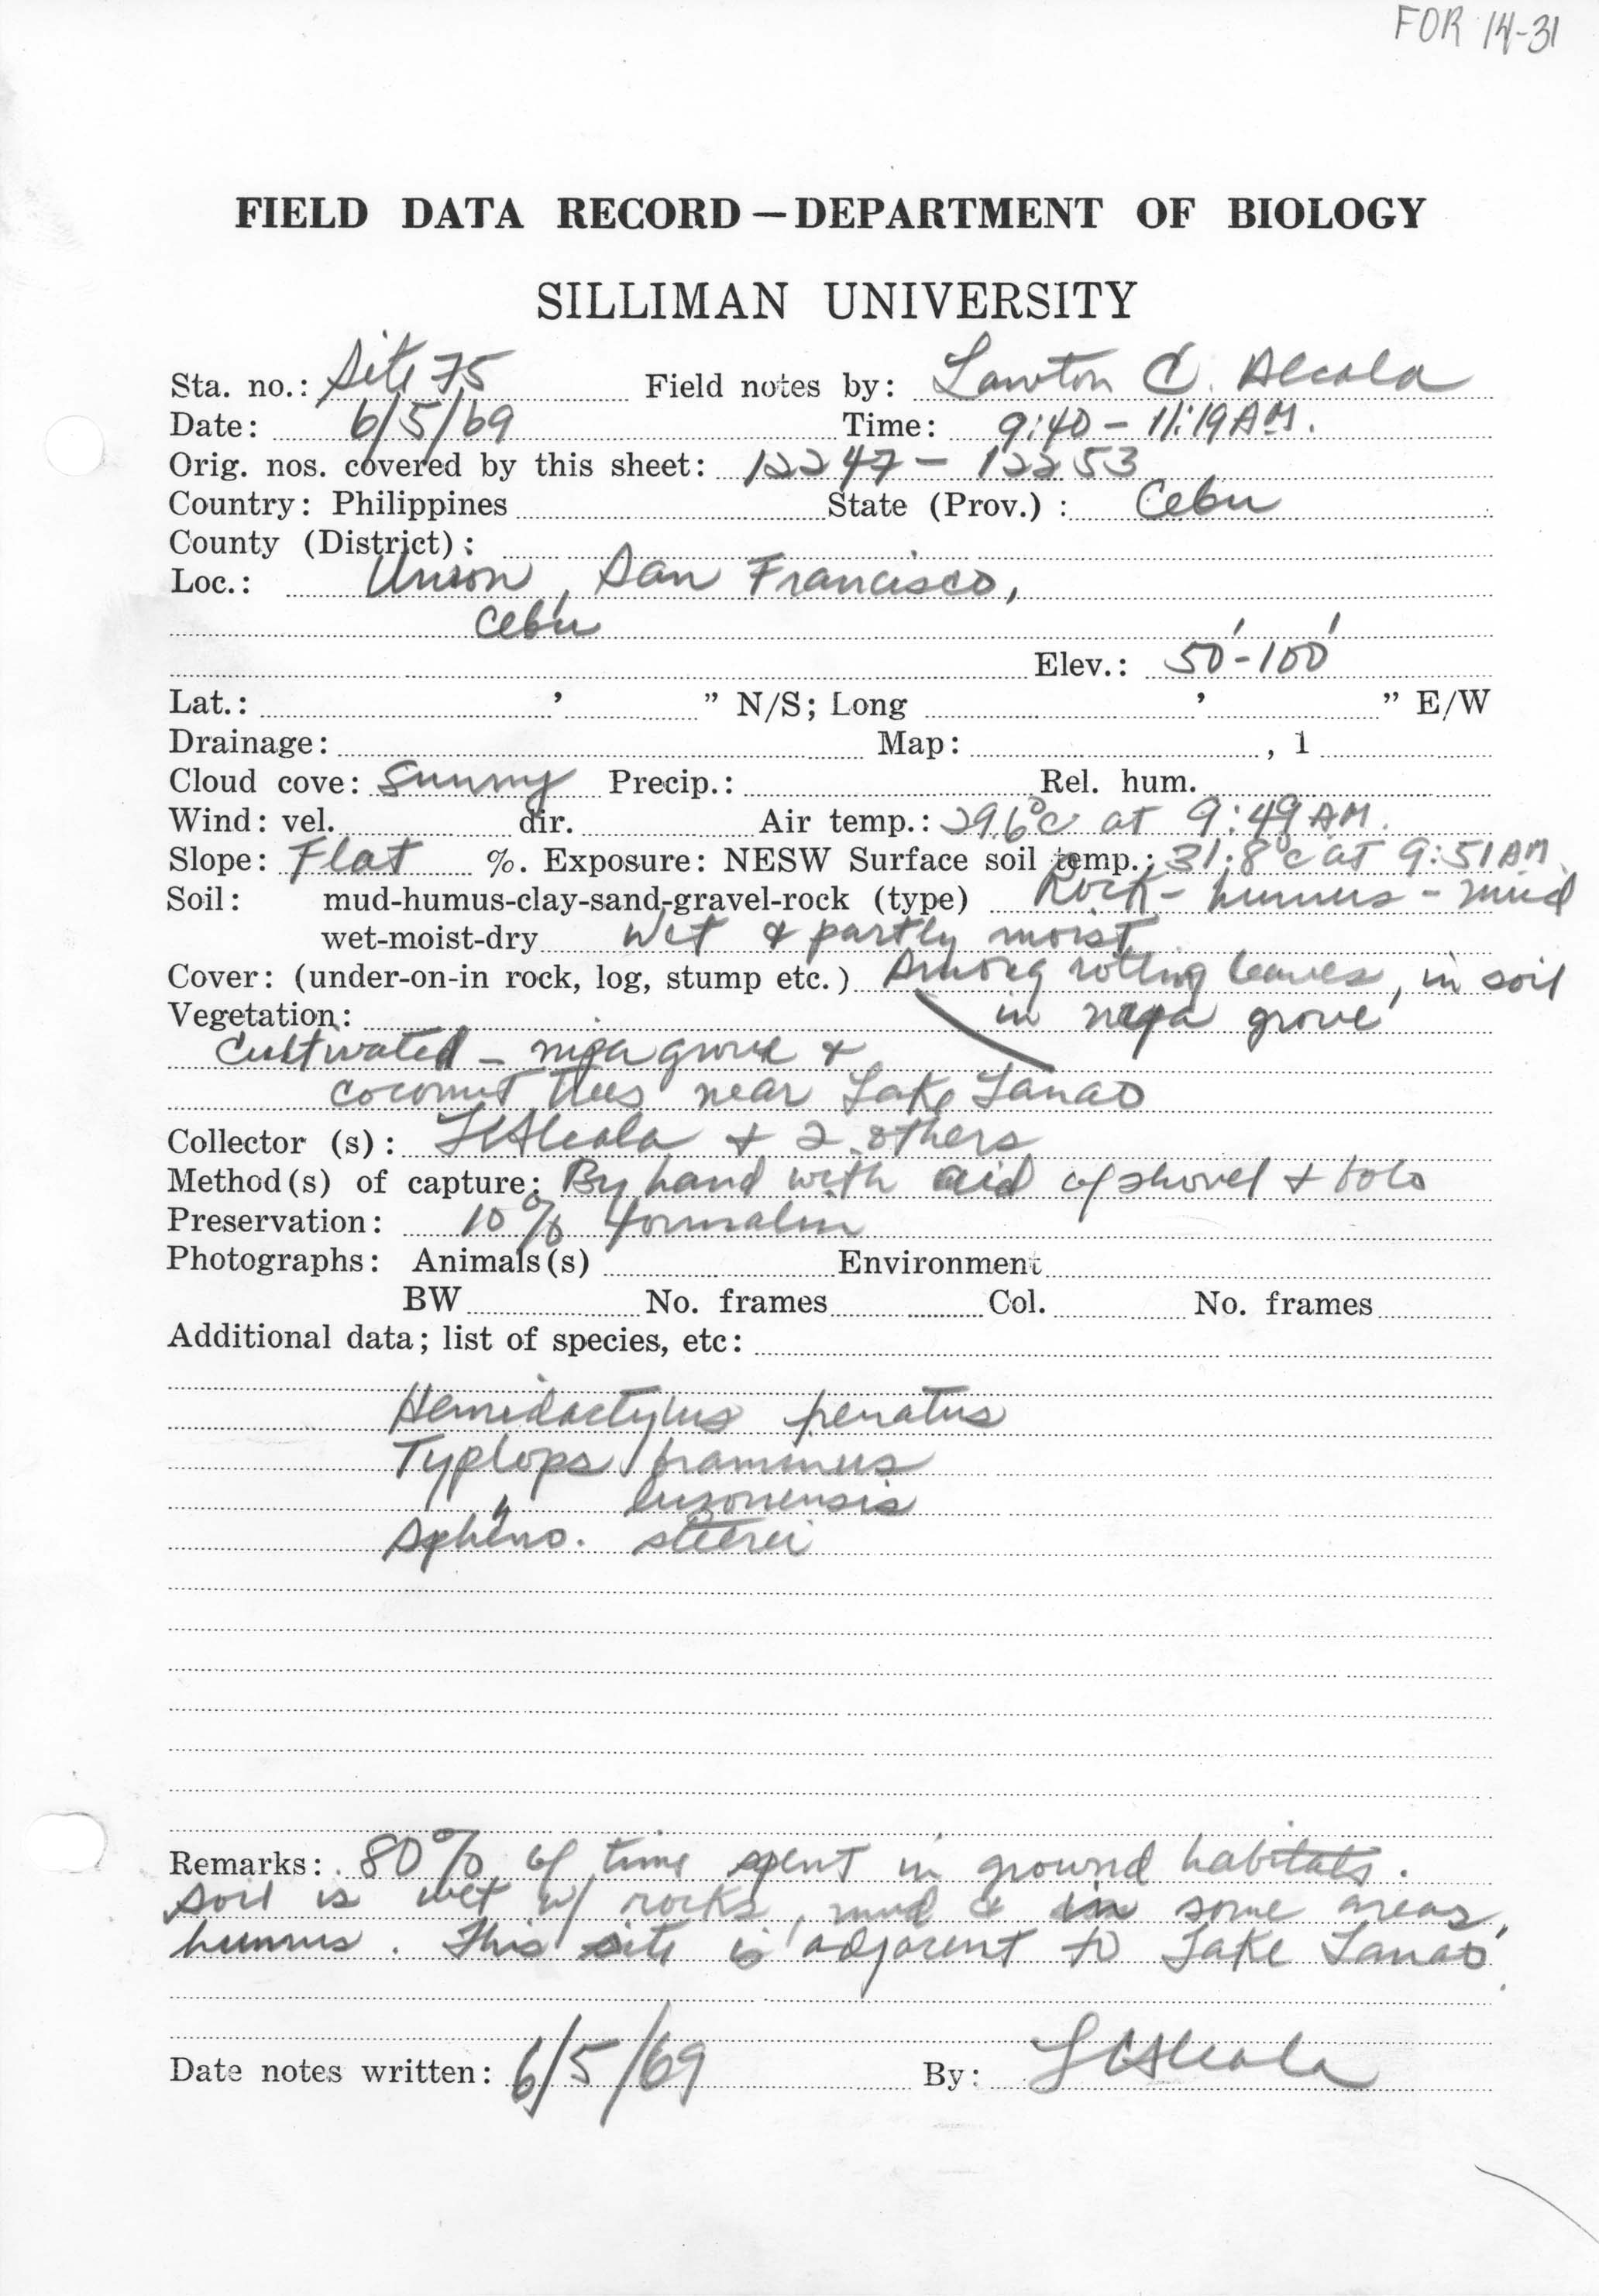 FOR 14-31
FIELD DATA RECORD — DEPARTMENT OF BIOLOGY
SILLIMAN UNIVERSITY
Sta. no.: Site 75 Field notes by: Lawton C. Alcala
Date: 6/5/69 Time: 9:40 - 11:19 AM.
Orig. nos. covered by this sheet: 12247 - 12253
Country: Philippines State (Prov.) : Cebu
County (District) :
Loc.: Union, San Francisco,
Cebu
Elev.: 50'-100'
Lat.: ' " N/S; Long ' " E/W
Drainage: Map: , 1
Cloud cove: Sunny Precip.: Rel. hum.
Wind: vel. dir. Air temp.: 29.6°C at 9:49 AM.
Slope: Flat %. Exposure: NESW Surface soil temp.: 31.8°C at 9:51 AM.
Soil: mud-humus-clay-sand-gravel-rock (type) Rock - humus - mud
wet-moist-dry Wet & partly moist
Cover: (under-on-in rock, log, stump etc.) Among rotting leaves, in soil
Vegetation: in nipa grove
Cultivated - nipa grove &
coconut trees near Lake Lanao
Collector (s) : LCAlcala + 2 others
Method(s) of capture: By hand with aid of shovel + bolo
Preservation: 10% formalin
Photographs: Animals(s) Environment
BW No. frames Col. No. frames
Additional data; list of species, etc:
Hemidactylus frenatus
Typlops braminus
" luzonensis
Spheno. steerei
Remarks: 80% of time spent in ground habitats.
Soil is wet w/ rocks, mud & in some areas,
humus. This site is adjacent to Lake Lanao.
Date notes written: 6/5/69 By: LCAlcala